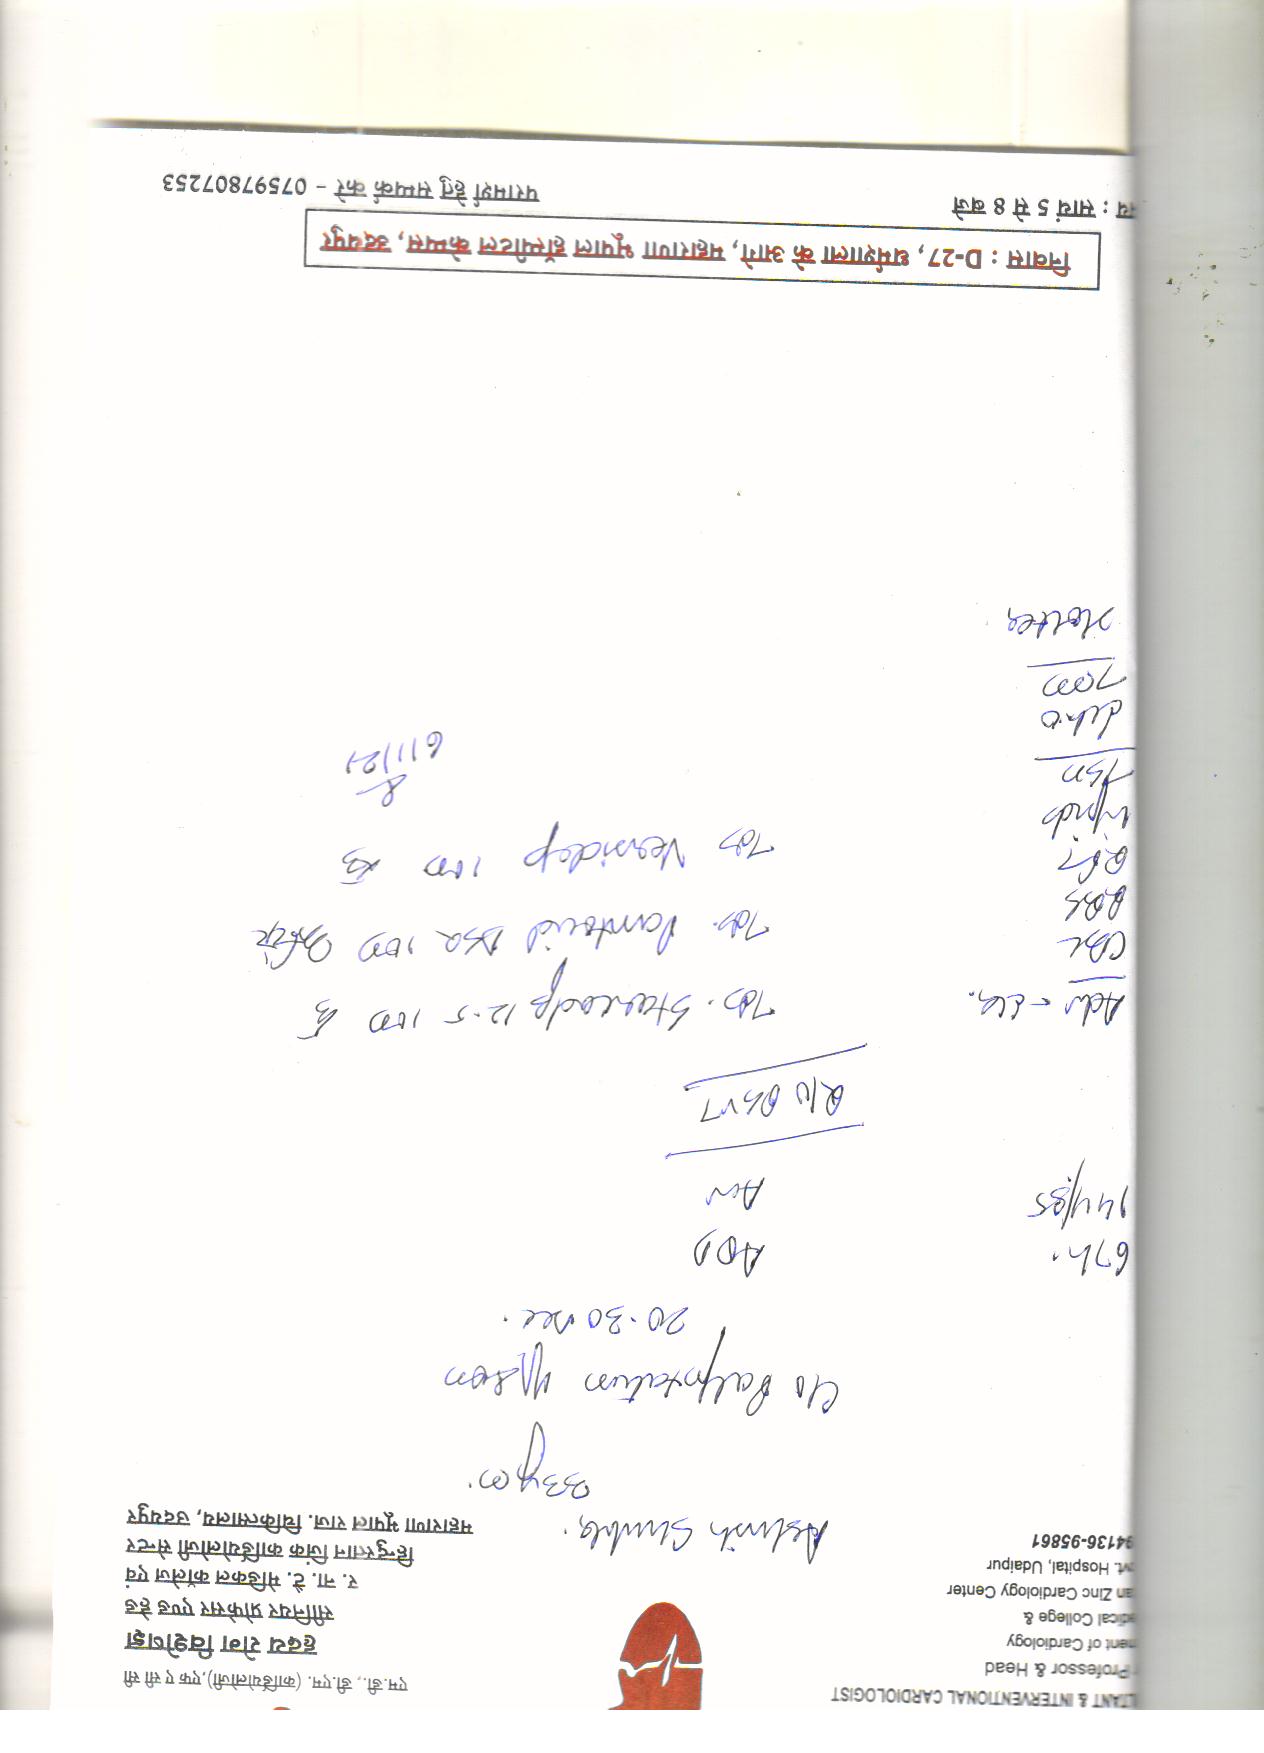 LTANT & INTERVENTIONAL CARDIOLOGIST
Professor & Head
ment of Cardiology
edical College &
an Zinc Cardiology Center
vt. Hospital, Udaipur
94136-95861
एम.डी., डी.एम. (कार्डियोलोजी), एफ ए सी सी
हृदय रोग विशेषज्ञ
सीनियर प्रोफेसर एण्ड हेड
र. ना. टे. मेडिकल कॉलेज एवं
हिन्दुस्तान जिंक कार्डियोलोजी सेन्टर
महाराणा भूपाल राज. चिकित्सालय, उदयपुर
Ashish
33y
Palpitation
20-30 sec.
67/
144/95
R/O PSVT
Adv - ECG.
CBC
RBS
RFT
Lipids
TSH
Echo
Holter
Tab. 12.5 1OD
Tab. DSR 1OD
Tab 1OD
6/1/21
निवास : D-27, धर्मशाला के आगे, महाराणा भूपाल हॉस्पीटल केम्पस, उदयपुर
मय : सायं 5 से 8 बजे
परामर्श हेतु सम्पर्क करे - 07597807253